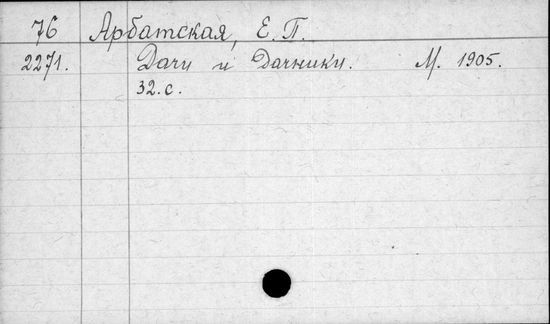 76 Арбатская, Е. П.
2271. Дачи и Дачники. М. 1905.
32. с.